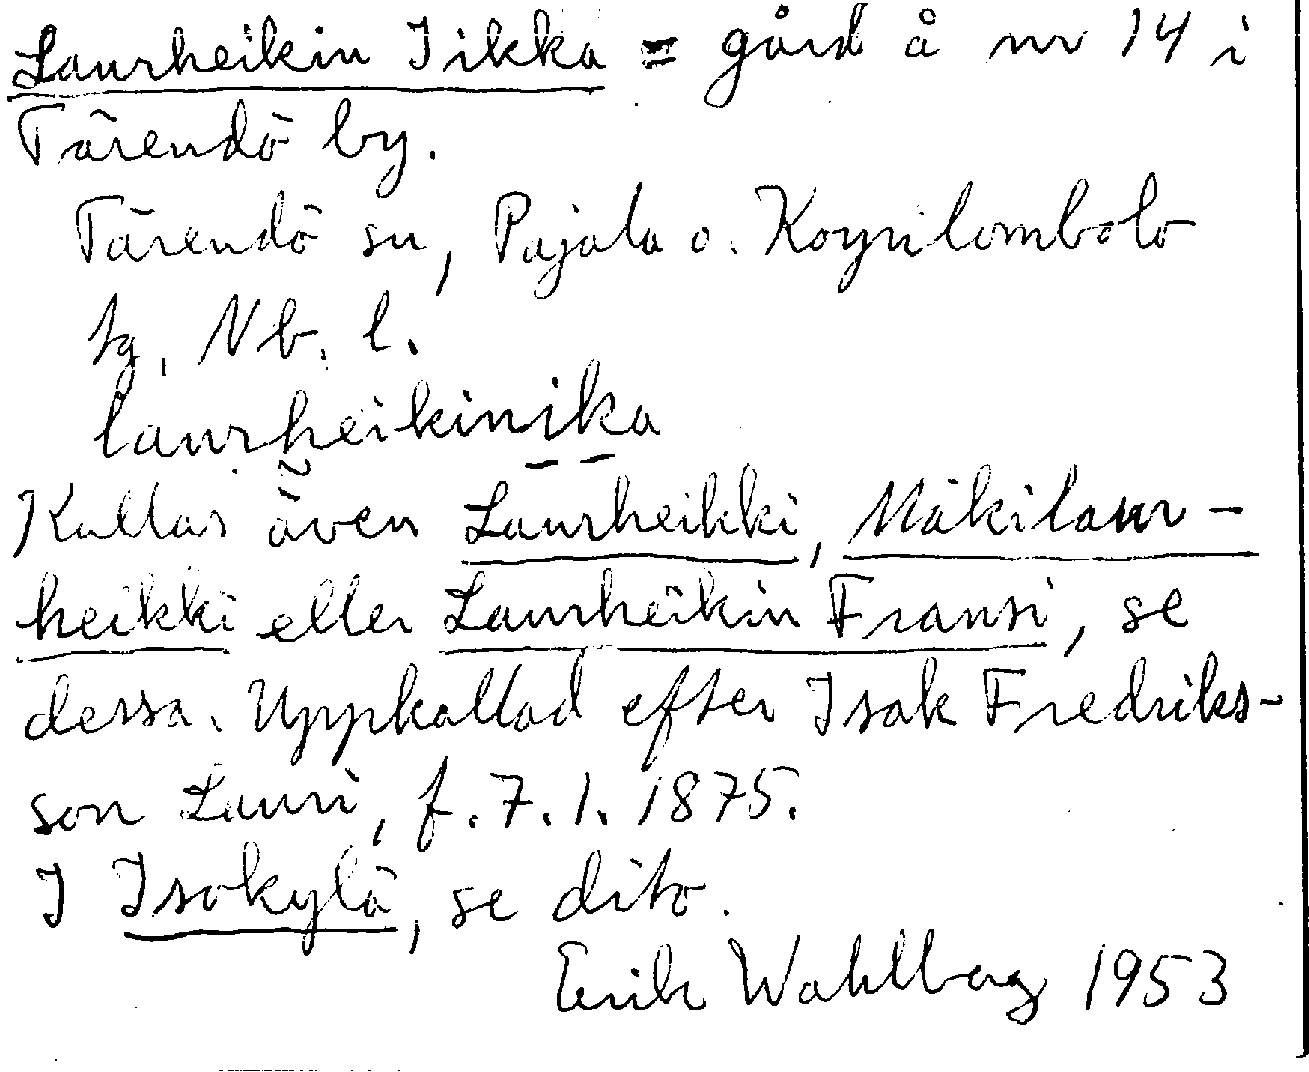 Laurheikin Iikka = gård å nr 14 i
Tärendö by.
Tärendö sn, Pajala o. Korpilombolo
tg, Nb. l.
laurheikinika
Kallas även Laurheikki, Mäkilaur-
heikki eller Laurheikin Fransi, se
dessa. Uppkallad efter Isak Fredriks-
son Lauri, f. 7.1.1875.
I Isokylä, se dito.
Erik Wahlberg 1953